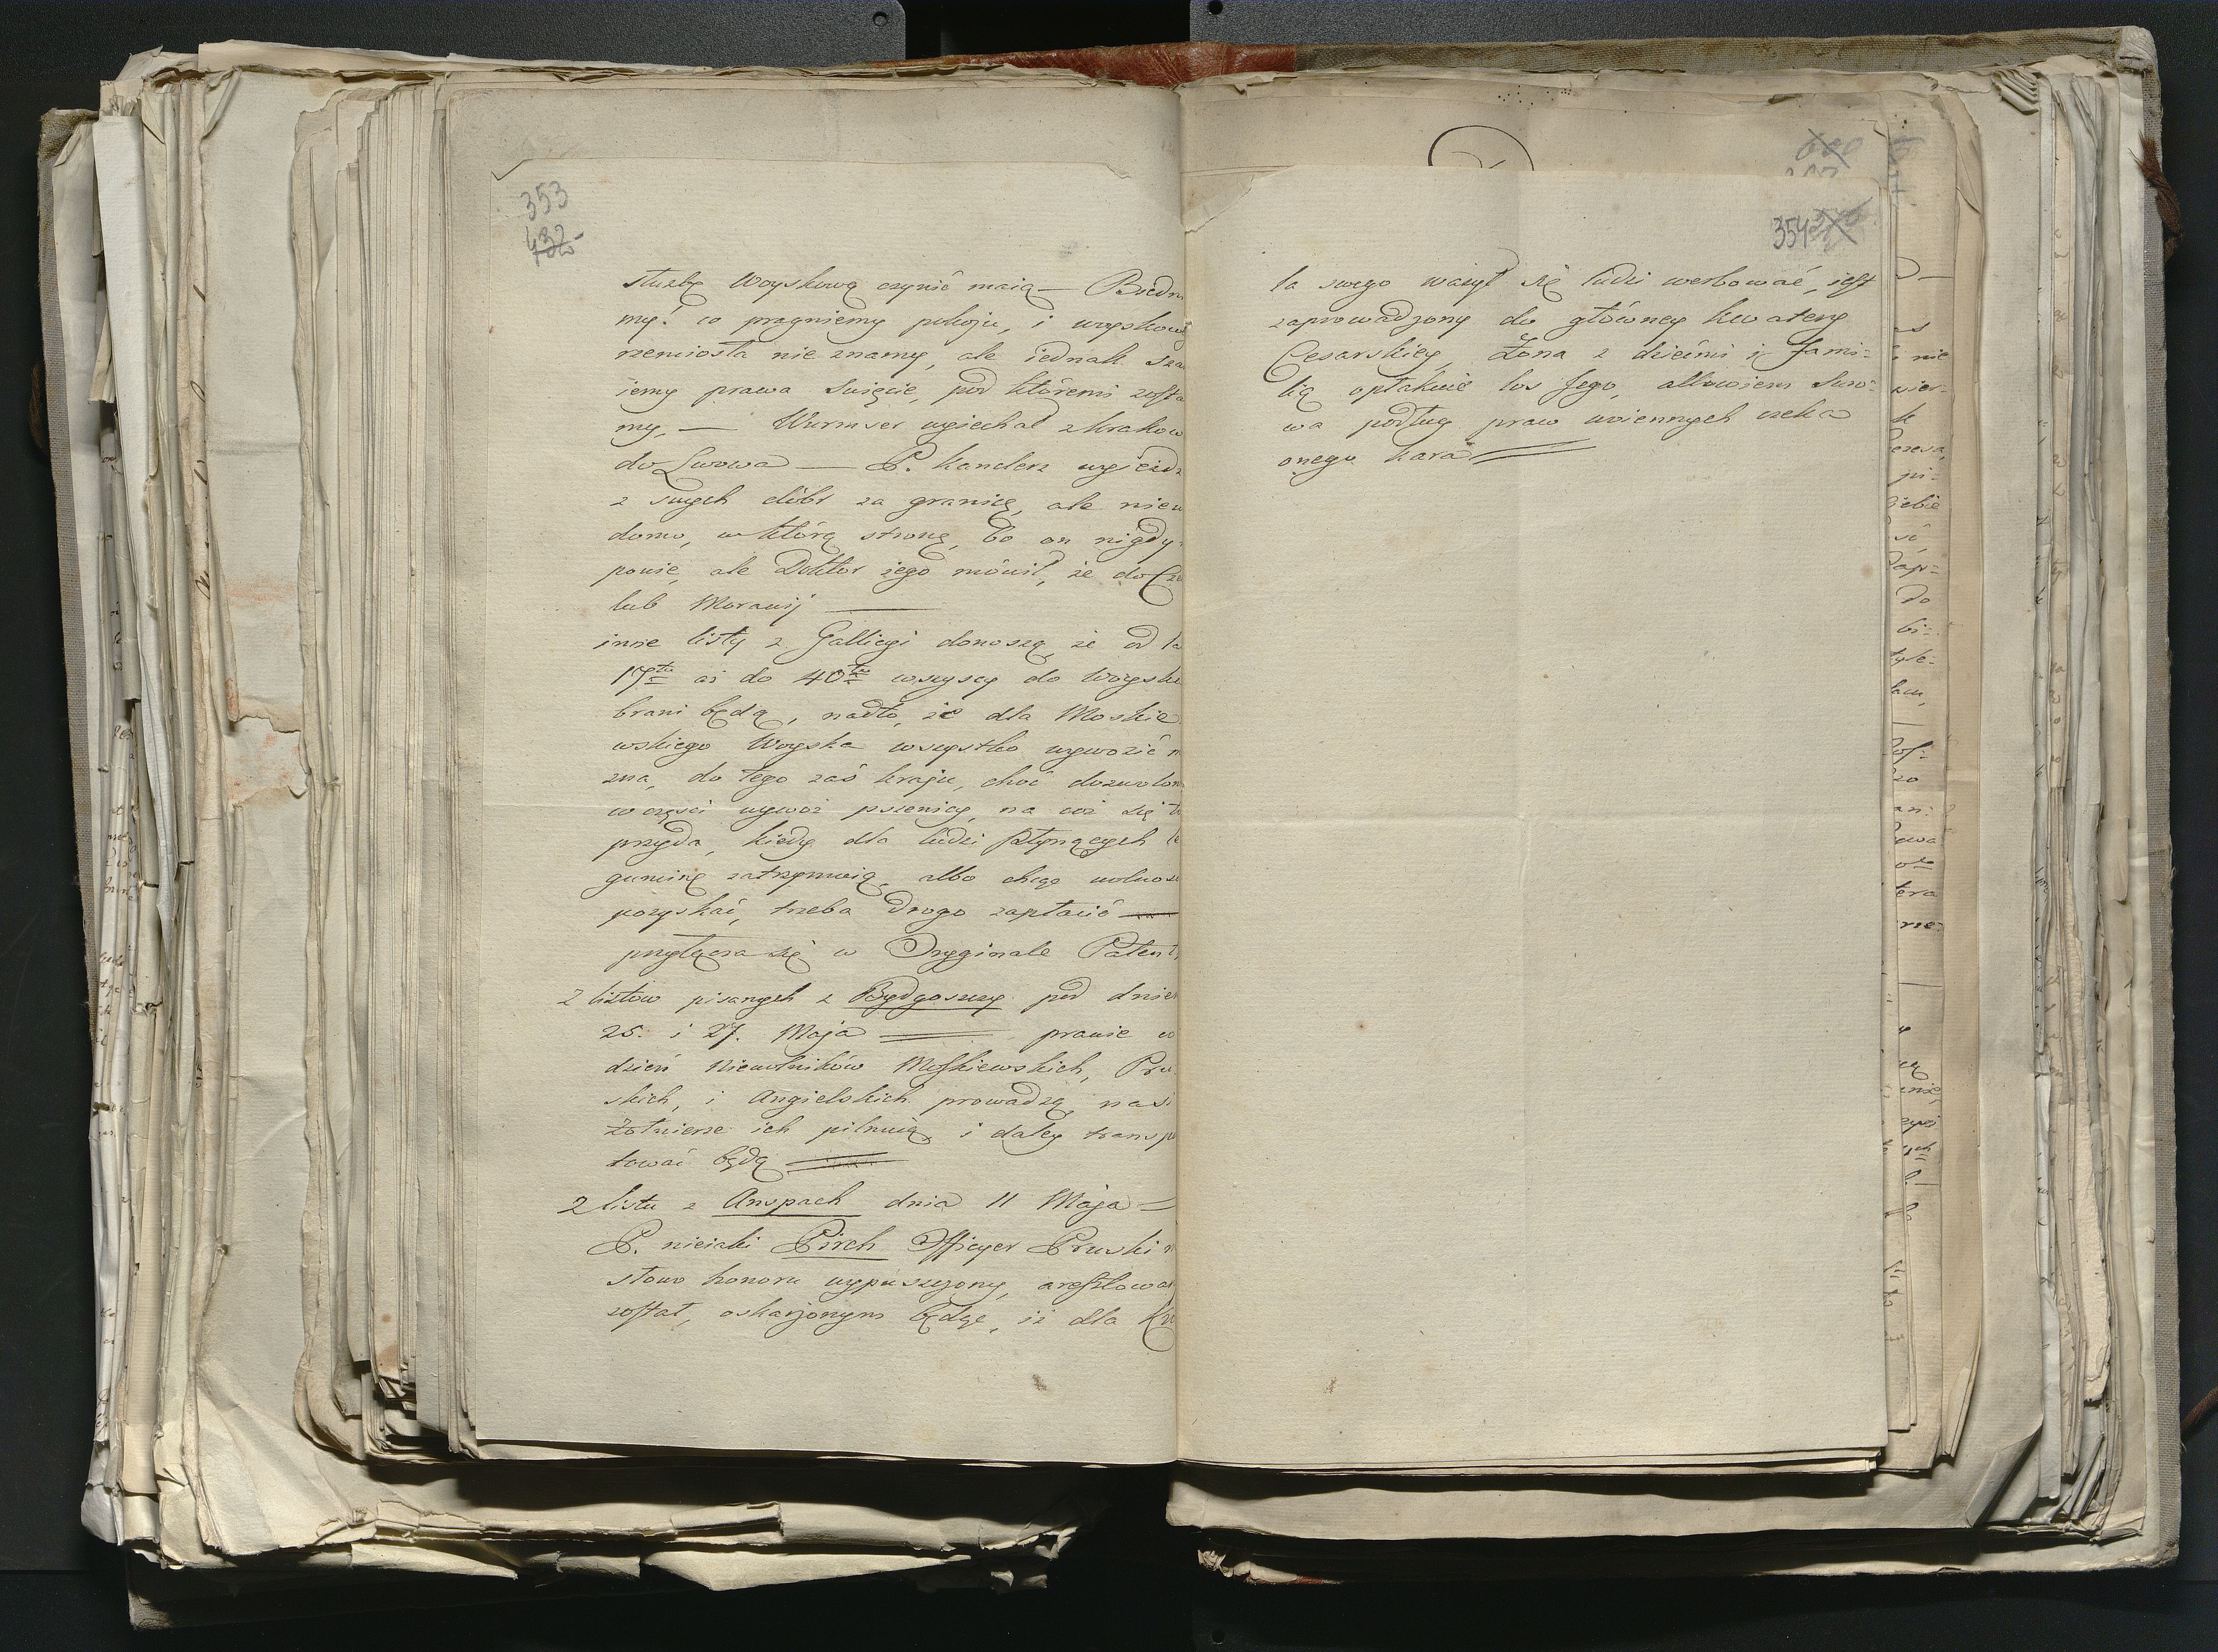 353
432
służbę Woyskową czynić maią — Biedn
my! co pragniemy pokoju, i woyskow
rzemiosła nie znamy, ale iednak sza
iemy prawa święcie, pod któremi zosta
my, — Wurmser wyiechał z Krakow
do Lwowa — P. Kanclerz wyieżdż
z swych dóbr za granicę, ale niew
domo, w którą stronę, bo on nigdy
powie, ale Doktor iego mówił, że do Cze
lub Morawij —
inne listy z Gallicyi donoszą, że od la
17tu aż do 40tu wszyscy do Woyska
brani będą, nadto, że dla Moskie
wskiego Woyska wszystko wywozić m
zna, do tego zaś kraju, choć dozwolon
w części wywóz pszenicy, na cóż się to
przyda, kiedy dla ludzi płynących le
guminę zatrzymuią, albo chcąc wolnoś
pozyskać, trzeba drogo zapłacić —
przyłącza się w Oryginale Patent
Z listow pisanych z Bydgoszczy pod dnie
25. i 27. Maja = prawie co
dzień Niewolników Moskiewskich, Pru
skich, i Angielskich prowadzą, nasi
Żołnierze ich pilnuią i daley transpo
tować będą =
Z listu z Anspach dnia 11 Maja =
P. nieiaki Pirch Officyer Pruski n
słowo honoru wypuszczony, aresztowan
został, oskarzonym będąc, iż dla Kró
600
354
la swego ważył się ludzi werbować, iest
zaprowadzony do głównej kwatery
Cesarskiey, Żona z dziećmi i fami=
lią opłakuie los Jego, albowiem Suro=
wa podług praw woiennych czeka
onego kara =